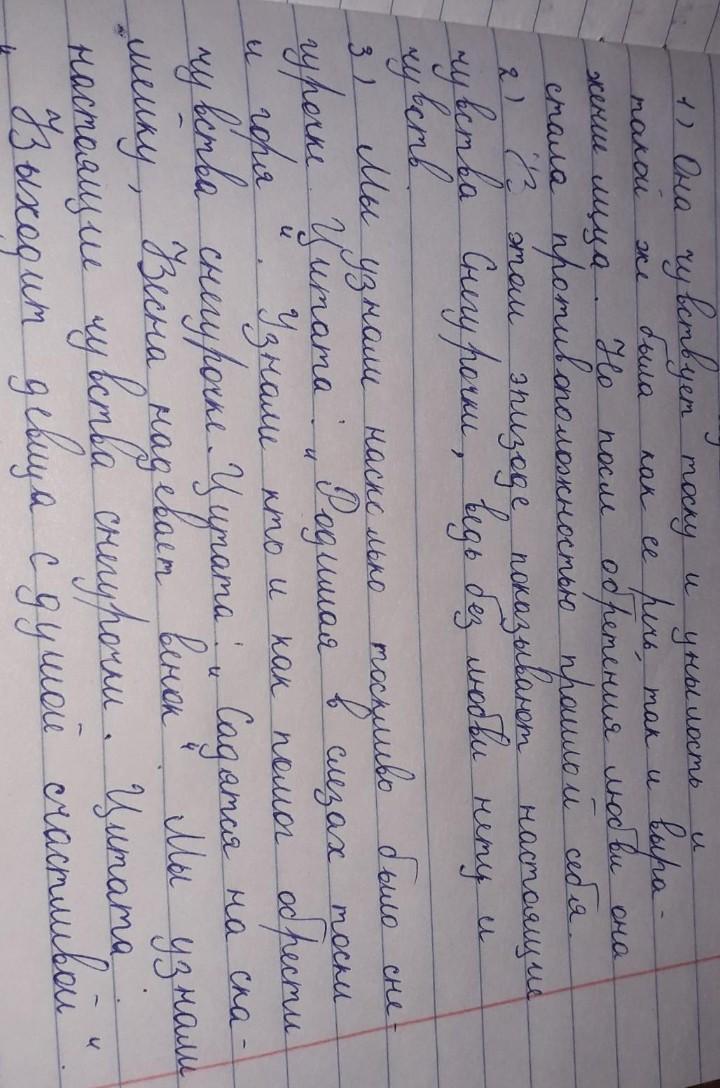 1) Она чувствует тоску и унылость и
такой же была как её речь так и выра-
жении лица. Но после обретения любви она
стала противоположностью прошлой себя.
2) В этом эпизоде показывают настоящие
чувства Снегурочки, ведь без любви нету и
чувств.
3) Мы узнали насколько тоскливо было сне-
гурочке. Цитата: "Родимая в слезах тоски
и горя". Узнали кто и как помог обрести
чувства снегурочке. Цитата: "Садятся на ска-
мейку, Весна надевает венок". Мы узнали
настоящие чувства снегурочки. Цитата:
"Выходит девица с душой счастливой".